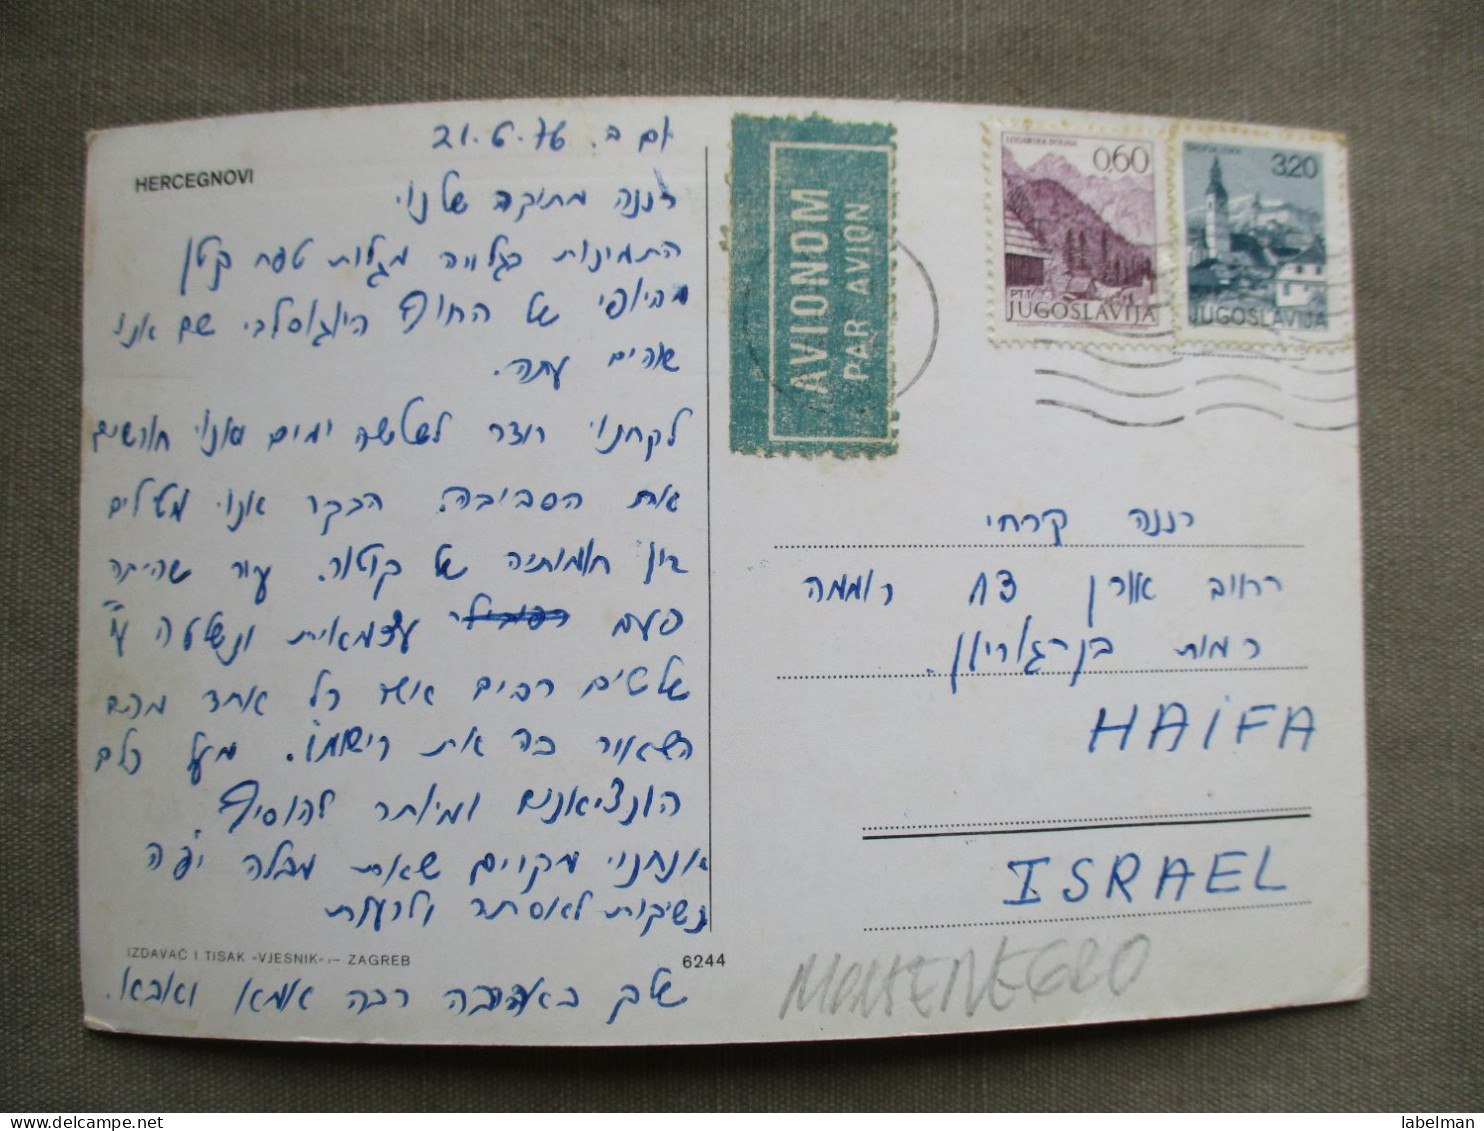 HERCEGNOVI
יום ב. 21.6.76
רננה מתוקה שלנו.
התמונות בגלויה מגלות טפח קטן
מהיופי של החוף היוגוסלבי שם אנו
שוהים עתה.
לקחנו חדר לשלושה ימים ואנו חורשים
את הסביבה. הבקר אנו מטילים
בין חומותיה של קוטור. עיר שהיתה
פעם עצמאית ונשלטה ע"י
שליטים רבים אשר כל אחד מהם
השאיר בה את רישומו. מעל כולם
הונציאנים ומיותר להוסיף
אנחנו מקוים שאת מבלה יפה
נשיקות לאסתר ולרעות
שלך באהבה רבה אמא ואבא.
IZDAVAČ I TISAK «VJESNIK» — ZAGREB
6244
AVIONOM
PAR AVION
0,60
PTT
JUGOSLAVIJA
3,20
JUGOSLAVIJA
רננה קרחי
רחוב אורן 13 רוממה
רמות בן-גוריון.
HAIFA
ISRAEL
MONTENEGRO
labelman